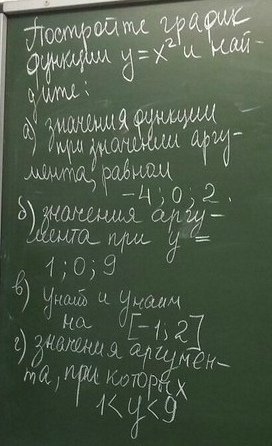 Постройте график
функции y=x² и най-
дите:
а) значения функции
при значении аргу-
мента, равном
-4; 0; 2.
б) значения аргу-
мента при y =
1; 0; 9
в) yнаиб и yнаим
на [-1; 2]
г) значения аргумен-
та, при которых
1<y<9